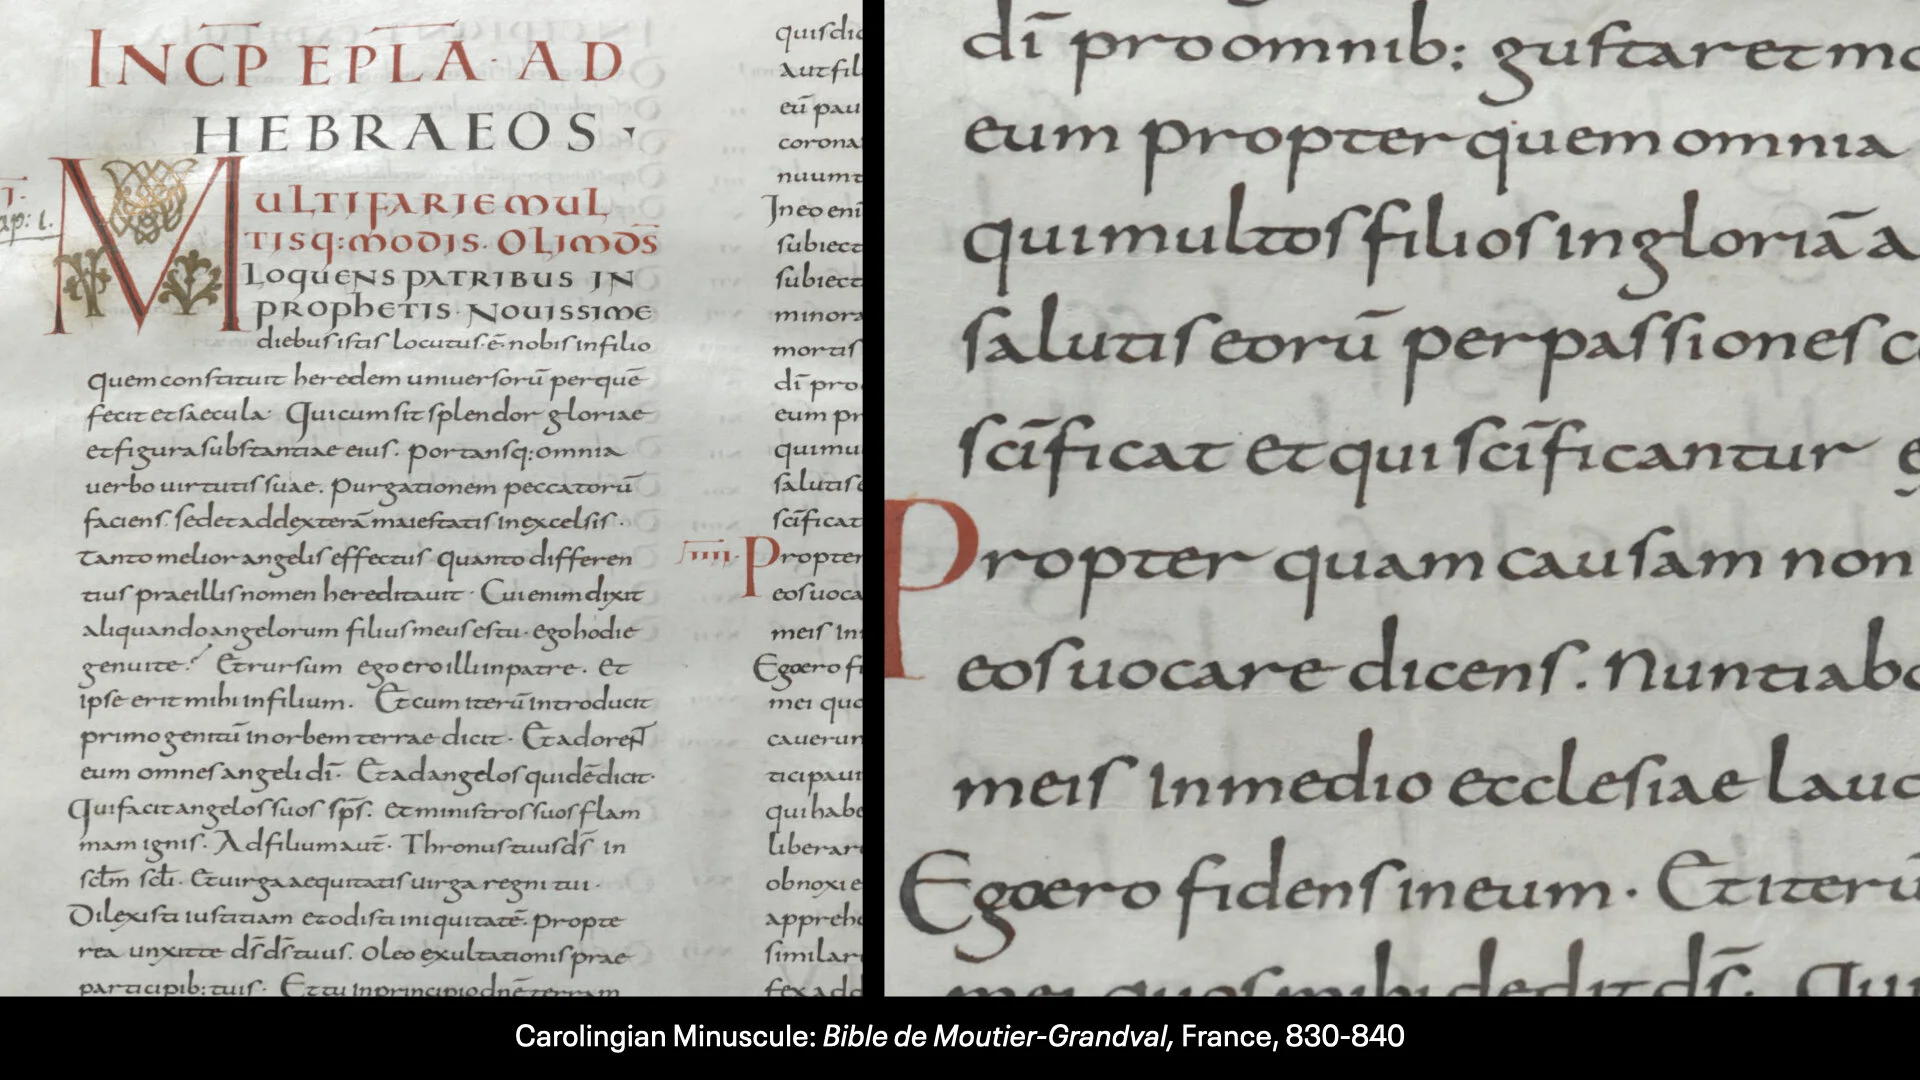 INCP EPLA · AD
HEBRAEOS ·
MULTIFARIE MUL
TISQ: MODIS · OLIM DS̄
LOQUENS PATRIBUS IN
PROPHETIS · NOUISSIME
diebus istis locutus · ē nobis in filio
quem constituit heredem uniuersorū per quē
fecit et saecula · Qui cum sit splendor gloriae
et figura substantiae eius . portansq: omnia
uerbo uirtutis suae . purgationem peccatorū
faciens . sedet ad dexterā maiestatis in excelsis .
Tanto melior angelis effectus quanto differen
tius prae illis nomen hereditauit · Cui enim dixit
aliquando angelorum filius meus es tu · ego hodie
genui te . Et rursum ego ero illi in patre . et
ipse erit mihi in filium . Et cum iterū introducit
primogenitū in orbem terrae dicit · Et adorent
eum omnes angeli dī · Et ad angelos quidē dicit ·
Qui facit angelos suos sp̄s . et ministros suos flam
mam ignis . Ad filium aut̄ · Thronus tuus ds̄ in
sclm scli . Et uirga aequitatis uirga regni tui .
Dilexisti iustitiam et odisti iniquitatē . propte
rea unxit te ds̄ ds̄ tuus . Oleo exultationis prae
participib: tuis . Et tu in principio dnē terram
cap: 1.
IIII · Propter
quis dic
Aut fil
eū pau
corona
nuum t
In eo eni
subiect
subiect
minora
mortis
dī pro
eum pr
qui mu
salutis e
scīficat
eos uoca
meis In
Ego ero fi
mei que
cauerun
ticipaui
qui habe
liberar
obnoxi e
appreh
similar
sex add
dī pro omnib: gustaret mo
eum propter quem omnia
qui multos filios in gloriā a
salutis eorū per passiones c
scīficat et qui scīficantur e
Propter quam causam non
eos uocare dicens . Nuntiabo
meis In medio ecclesiae laud
Ego ero fidens in eum . Et iterū
mei quos mihi dedit ds̄ . Qui
Carolingian Minuscule: Bible de Moutier-Grandval, France, 830-840